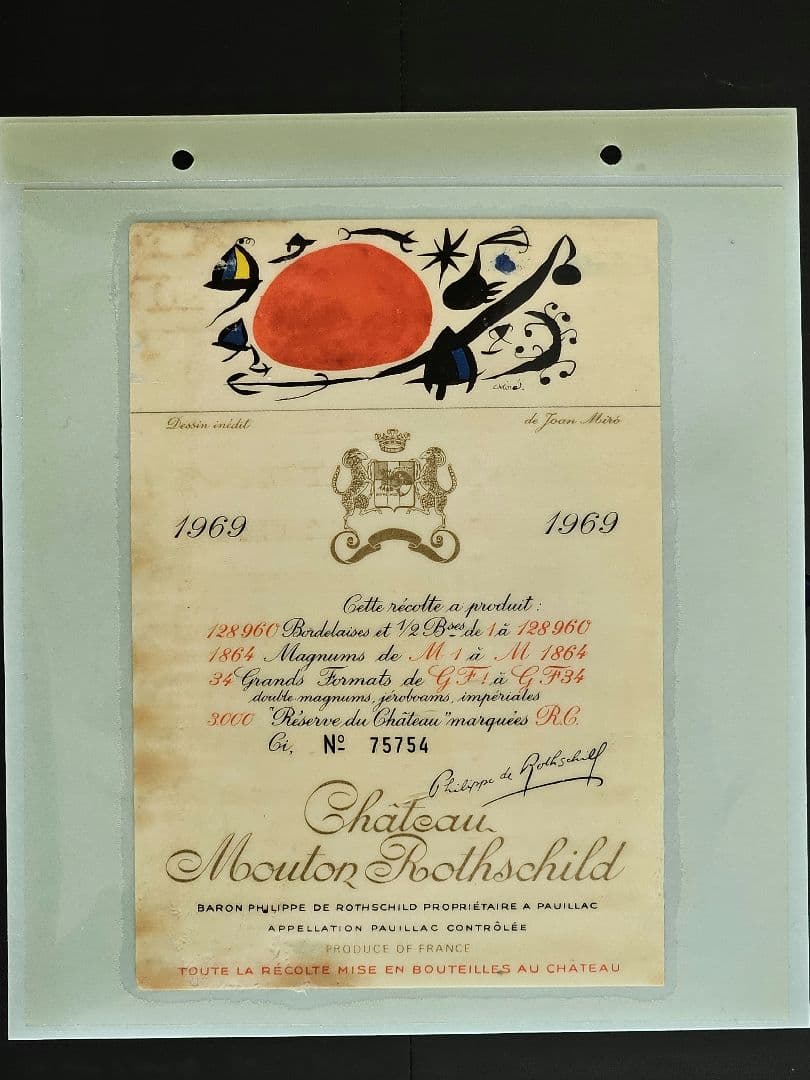 Miró.
Dessin inédit
de Joan Miró
1969
1969
Cette récolte a produit :
128960 Bordelaises et 1/2 Bses de 1 à 128960
1864 Magnums de M 1 à M 1864
34 Grands Formats de G F 1 à G F 34
double magnums, jéroboams, impériales
3.000 "Réserve du Château" marquées R.C.
Ci, Nº 75754
Philippe de Rothschild
Château
Mouton Rothschild
BARON PHILIPPE DE ROTHSCHILD PROPRIÉTAIRE A PAUILLAC
APPELLATION PAUILLAC CONTRÔLÉE
PRODUCE OF FRANCE
TOUTE LA RÉCOLTE MISE EN BOUTEILLES AU CHÂTEAU